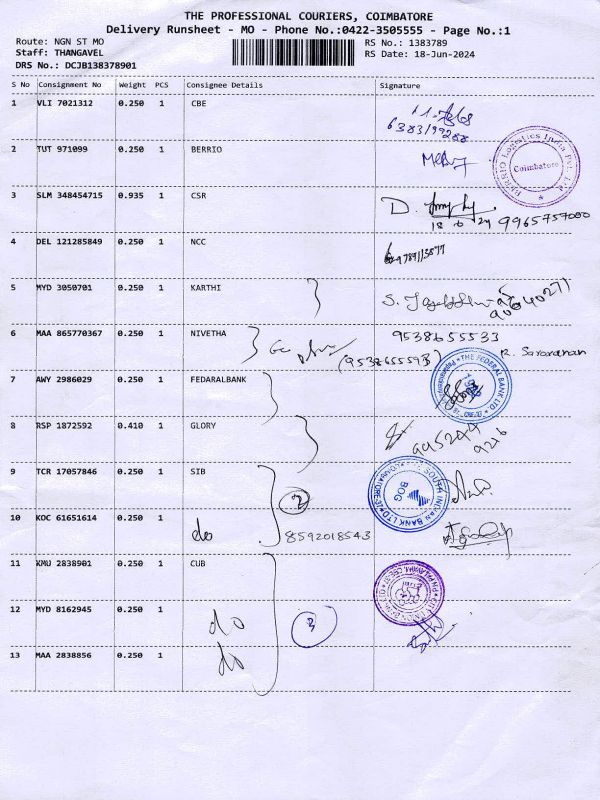 THE PROFESSIONAL COURIERS, COIMBATORE
Delivery Runsheet - MO - Phone No.:0422-3505555 - Page No.:1
Route: NGN ST MO
RS No.: 1383789
Staff: THANGAVEL
RS Date: 18-Jun-2024
DRS No.: DCJB138378901
S No Consignment No Weight PCS Consignee Details Signature
1 VLI 7021312 0.250 1 CBE
6383199288
2 TUT 971099 0.250 1 BERRIO
BERRIO Logistics India Pvt. Ltd.
Coimbatore
3 SLM 348454715 0.935 1 CSR
D.
18 6 24 9965757000
4 DEL 121285849 0.250 1 NCC
5 MYD 3050701 0.250 1 KARTHI
6 MAA 865770367 0.250 1 NIVETHA
9538655533
(9538655593)
R. Saravanan
7 AWY 2986029 0.250 1 FEDARALBANK
THE FEDERAL BANK LTD.
8 RSP 1872592 0.410 1 GLORY
9 TCR 17057846 0.250 1 SIB
2
SOUTH INDIAN BANK LTD
BOG
10 KOC 61651614 0.250 1 do
8592018543
11 KMU 2838901 0.250 1 CUB
12 MYD 8162945 0.250 1 do
3
13 MAA 2838856 0.250 1 do